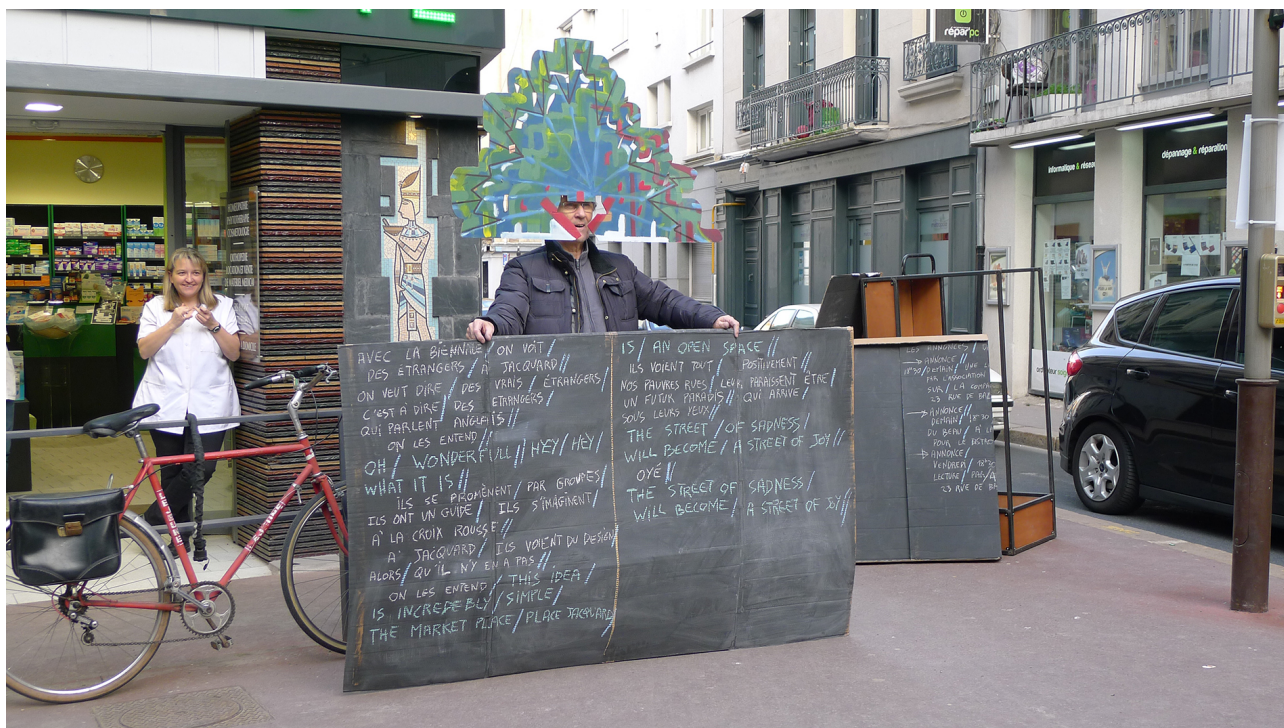 réparpc
informatique & réseau
dépannage & réparation
AVEC LA BIENNALE / ON VOIT /
DES ÉTRANGERS / À JACQUARD //
ON VEUT DIRE / DES VRAIS / ÉTRANGERS /
C'EST À DIRE / DES ETRANGERS /
QUI PARLENT ANGLAIS //
ON LES ENTEND //
OH / WONDERFULL // HEY / HEY /
WHAT IT IS //
ILS SE PROMÈNENT / PAR GROUPES /
ILS ONT UN GUIDE / ILS S'IMAGINENT /
À LA CROIX ROUSSE //
À JACQUARD / ILS VOIENT DU DESIGN
ALORS / QU'IL N'Y EN A PAS //
ON LES ENTEND / THIS IDEA /
IS INCREDEBLY / SIMPLE /
THE MARKET PLACE / PLACE JACQUARD //
IS / AN OPEN SPACE //
ILS VOIENT TOUT / POSITIVEMENT //
NOS PAUVRES RUES / LEUR PARAISSENT ÊTRE /
UN FUTUR PARADIS / QUI ARRIVE /
SOUS LEURS YEUX //
THE STREET / OF SADNESS /
WILL BECOME / A STREET OF JOY //
OYÉ //
THE STREET OF SADNESS /
WILL BECOME / A STREET OF JOY //
LES ANNONCES /
→ ANNONCE //
18'30 / DEMAIN / UNE
PAR L'ASSOCIATION
SUR / LA
23 RUE DE
→ ANNONCE /
DEMAIN / 18'30
DU BEAU / À
POUR LE
→ ANNONCE /
VENDREDI / 18'30
LECTURE /
23 RUE DE